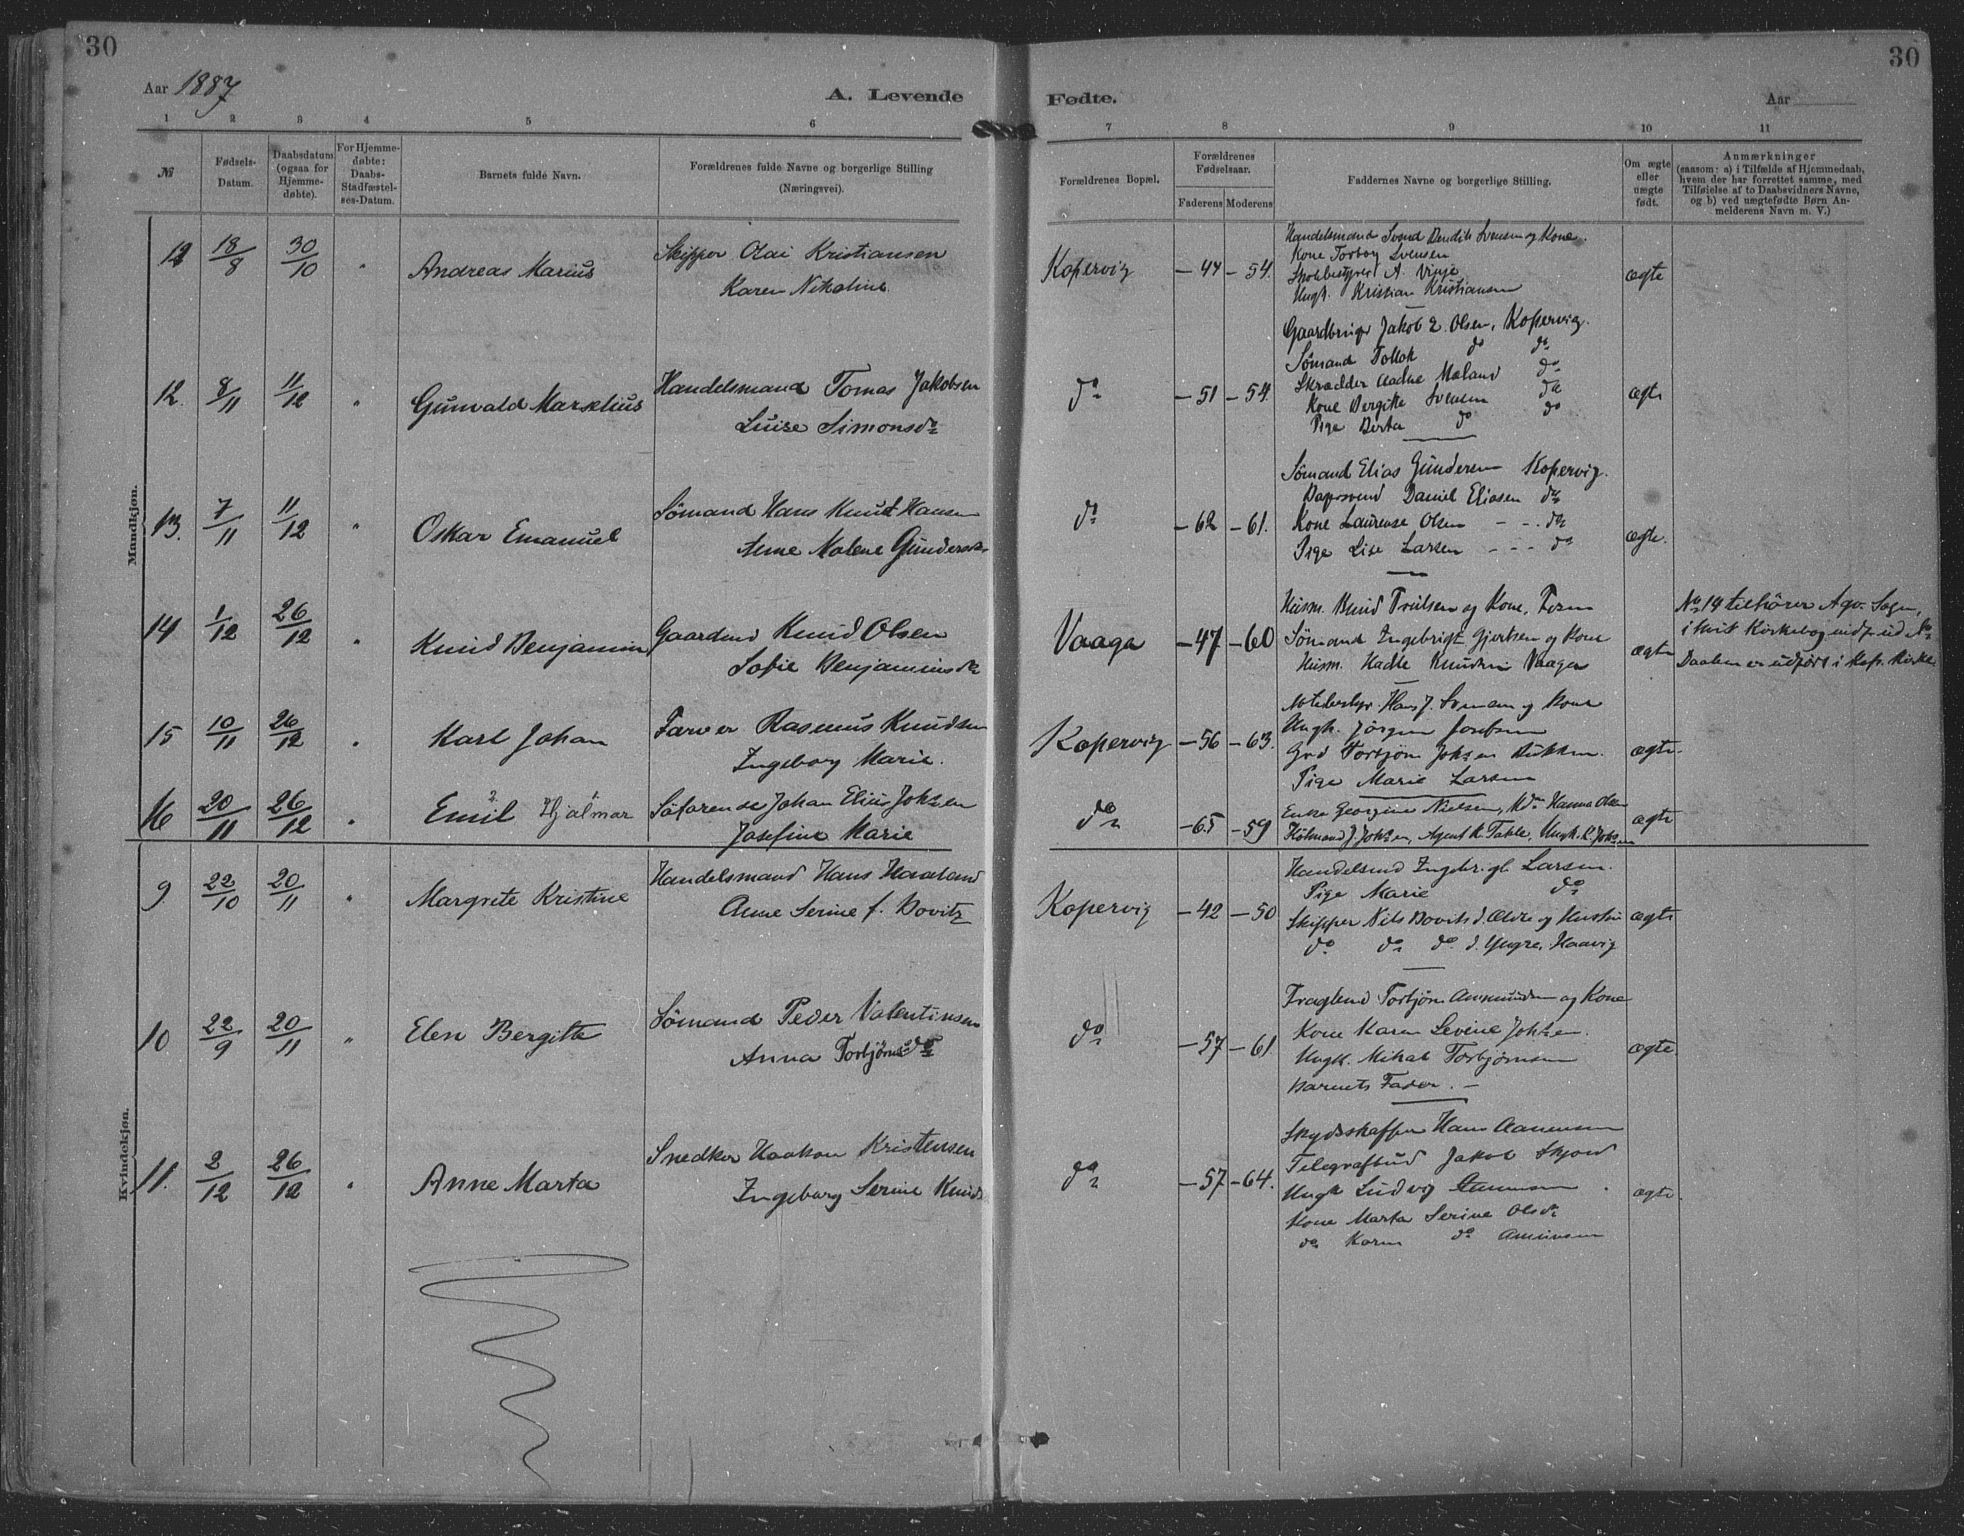 30
30
Aar 1887
A. Levende
Fødte.
Aar
1 2 3 4 5 6 7 8 9 10 11
№
Fødsels-
Datum.
Daabsdatum
(ogsaa for
Hjemme-
døbte).
For Hjemme-
døbte:
Daabs-
Stadfæstel-
ses-Datum.
Barnets fulde Navn.
Forældrenes fulde Navne og borgerlige Stilling
(Næringsvei).
Forældrenes Bopæl.
Forældrenes
Fødselsaar.
Faderens Moderens
Faddernes Navne og borgerlige Stilling.
Om ægte
eller
uægte
født.
Anmærkninger
(saasom: a) i Tilfælde af Hjemmedaab,
hvem der har forrettet samme, med
Tilføielse af to Daabsvidners Navne,
og b) ved uægtefødte Børn An-
melderens Navn m. V.)
Mandkjøn.
18/8 30/10 " Andreas Marius
Skipper Olai Kristiansen
Karen Nikoline
Kopervig -44 -54. ægte
Handelsmand Svend Bendik Svensen og Kone.
Kone Torborg Svensen
Skolebestyrer A. Vinje
Ungk. Kristian Kristiansen
12. 8/11 11/12 " Gunvald Marselius
Handelsmand Tomas Jakobsen
Luise Simonsdr
do -51 -54. ægte
Gaardbruger Jakob E. Olsen, Kopervig.
Sømand Tollak do do
Skrædder Aadne Mæland do
Kone Bergitte Svensen do
Pige Berta do do
13. 7/11 11/12 " Oskar Emanuel
Sømand Hans Knut Hansen
Anne Malene Gundersdr
do -62 -61. ægte.
Sømand Elias Gundersen Kopervig.
Daniel Eliasen do
Kone Laurense Olsen - - do
Pige Lise Larsen - - - do
14 1/12 26/12 " Knud Benjamin
Gaardmd Knud Olsen
Sofie Benjaminsdr
Vaaga -47 -60 ægte
Husm. Knud Trulsen og Kone,
Sømand Ingebrigt Gjertsen og Kone
Husm. Hadle Knudsen Vaaga
No 14 tilhører Sogn,
i hvis Kirkebog indf. ud. No
Daaben er udført i Kop. Kirke
15 10/11 26/12 " Karl Johan
Farver Rasmus Knudsen
Ingeborg Marie.
Kopervig -56 -63. ægte.
Hans J. og Kone
Ungk. Jørgen
Torbjørn
Pige Marie Larsen
16 20/11 26/12 " Emil Hjalmar
Søfarende Johan Elius
Josefine Marie
do -65 -59 ægte
Enke Georgine Nielsen, Hanna Olsen
Agent K. Takle, Ungk.
Kvindekjøn.
9 22/10 20/11 " Margrete Kristine
Handelsmand Hans Haaland
Anne Serine f. Bovitz
Kopervig -42 -50 ægte
Handelsmd Ingebrigt Larsen.
Pige Marie do
Skipper Nils Bovits d. Ældre og Hustru
do do do d. Yngre, Haavig
10 22/9 20/11 " Elen Bergitte
Sømand Peder Valentinsen
Anna Torbjørnsdr
do -57 -61 ægte
Torbjørn Amundsen og Kone
Kone Karen Levine
Ungk. Mikal Torbjørnsen
Barnets Fader. -
11. 2/12 26/12 " Anne Marta
Snedker Haakon Kristensen
Ingeborg Serine Knuds
do -57 -64. ægte.
Skydsskaffer Hans Aanensen
Telegrafbud Jakob
Ungk Ludvig
Kone Marta Serine Olsdr
do Karen do